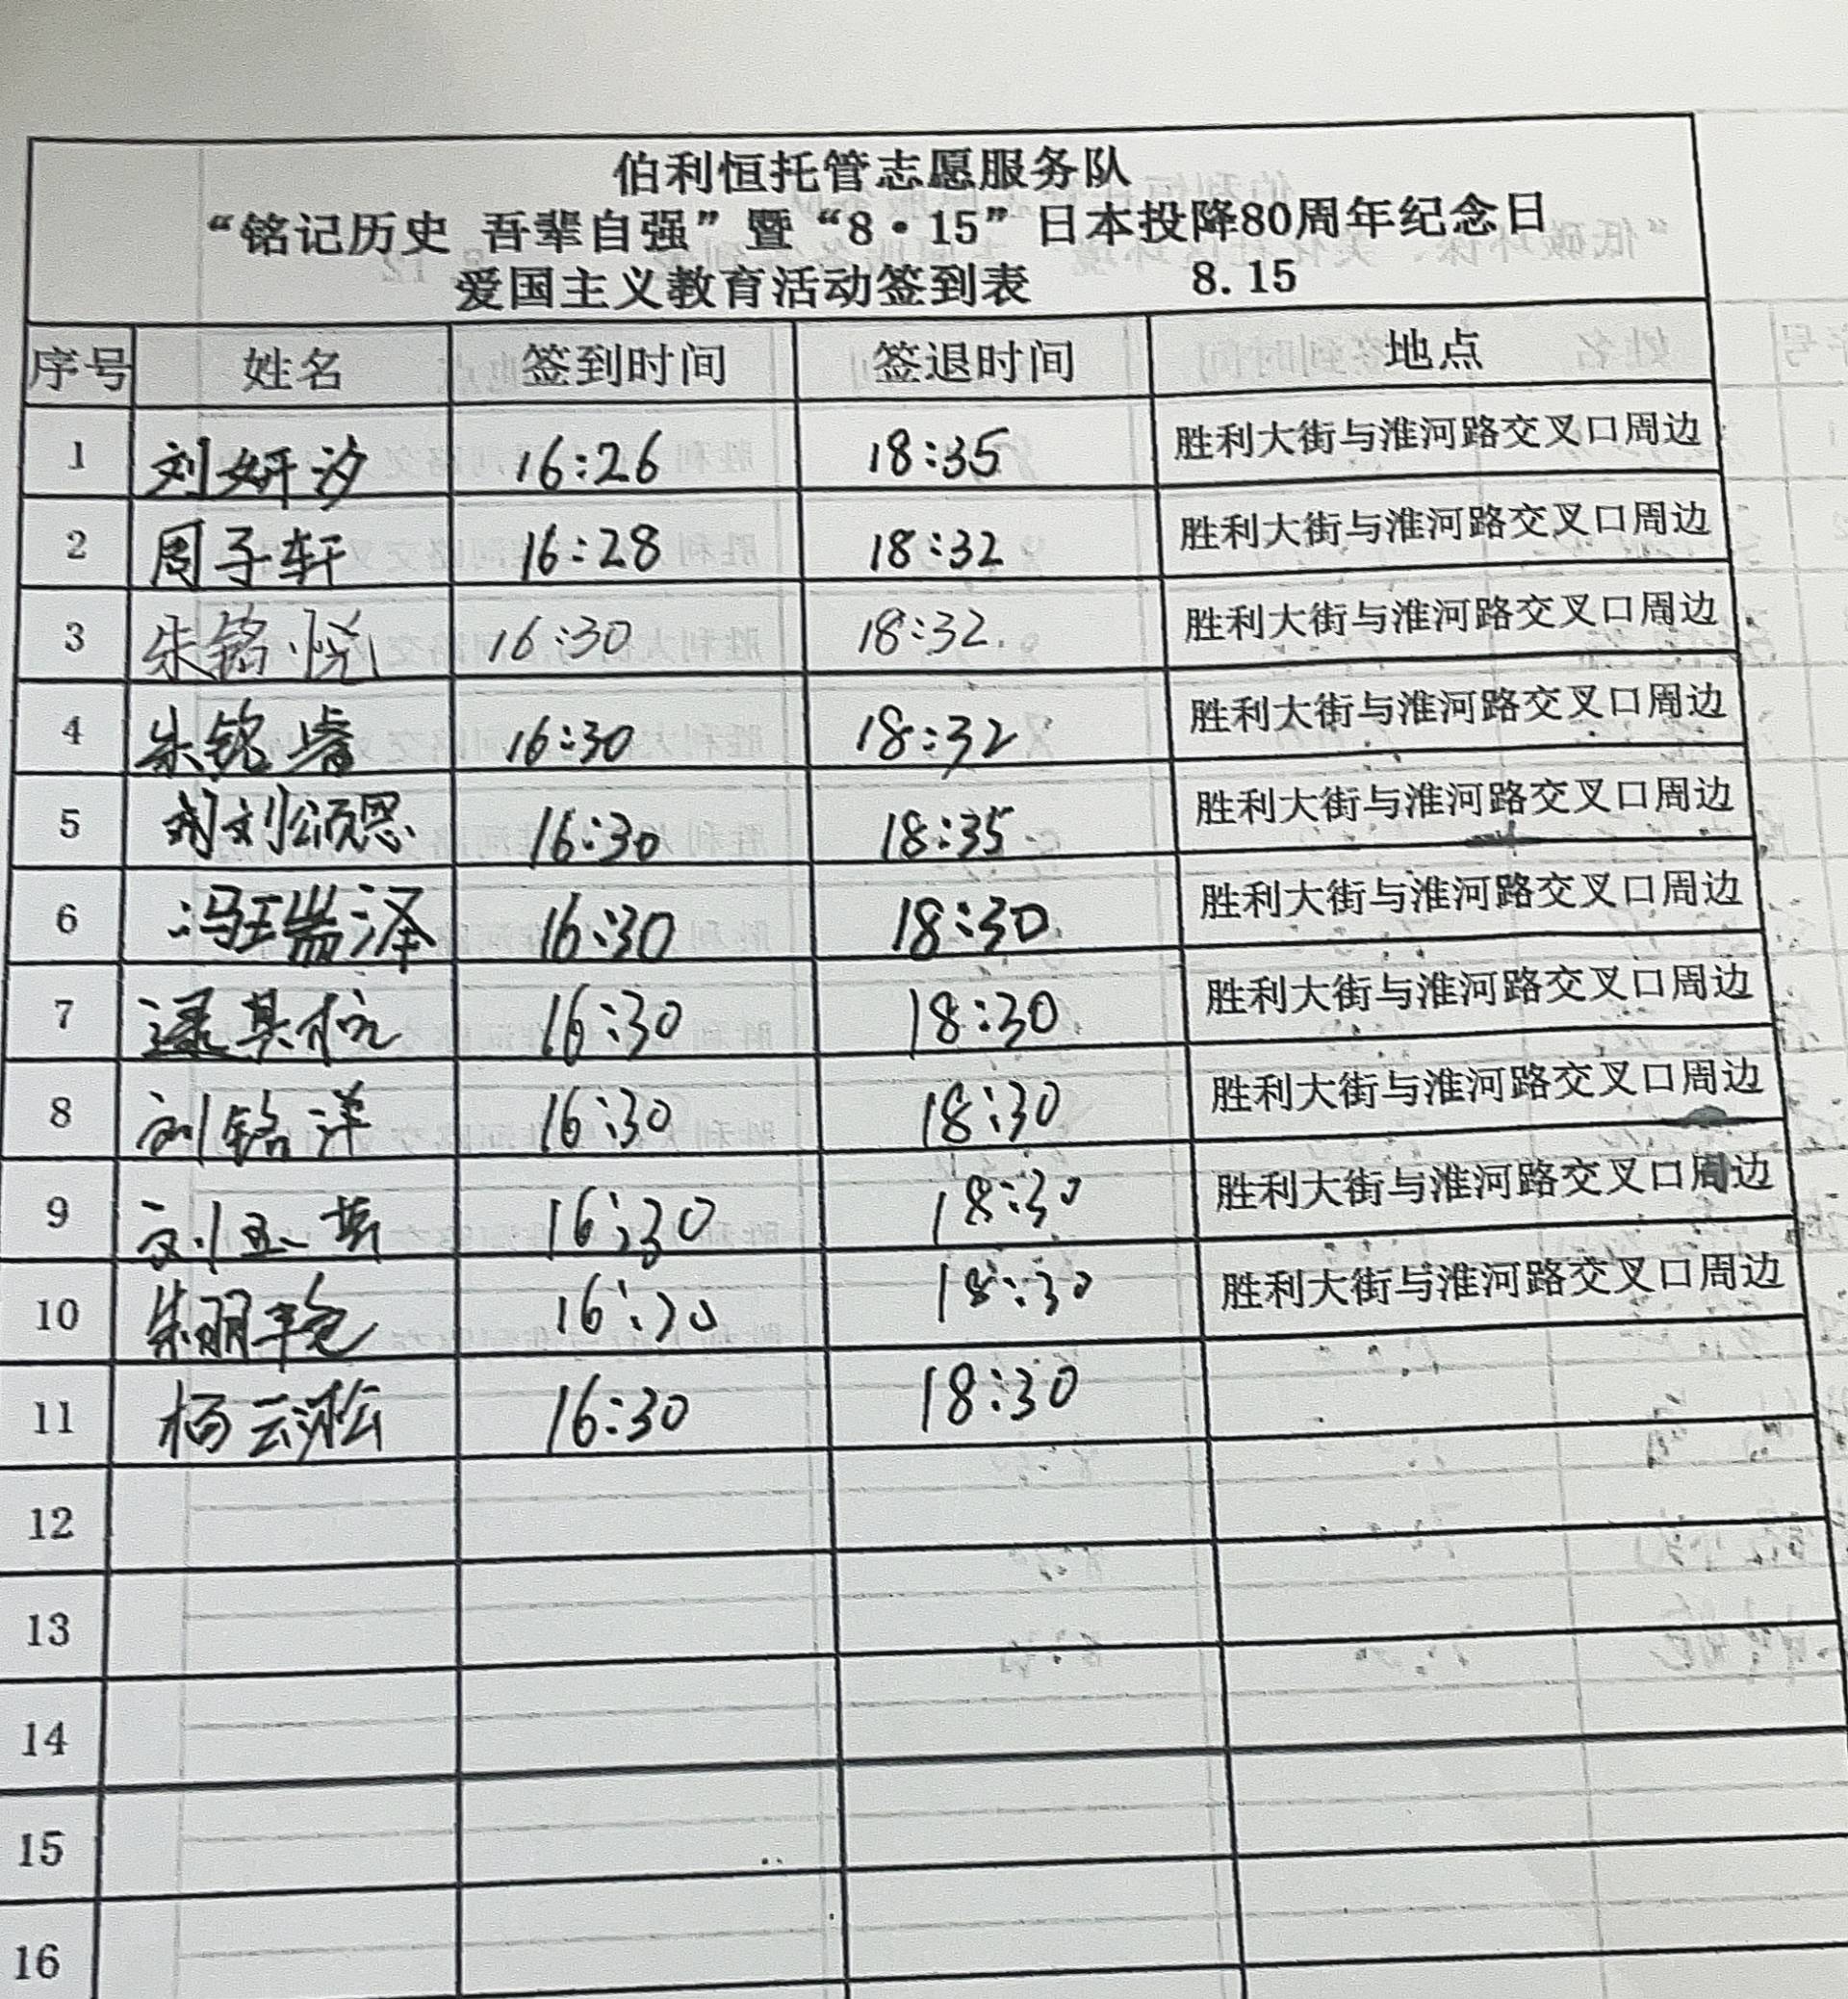 伯利恒托管志愿服务队
“铭记历史 吾辈自强”暨“8·15”日本投降80周年纪念日
爱国主义教育活动签到表 8.15
序号 姓名 签到时间 签退时间 地点
1 刘妍汐 16:26 18:35 胜利大街与淮河路交叉口周边
2 周子轩 16:28 18:32 胜利大街与淮河路交叉口周边
3 朱铭悦 16:30 18:32 胜利大街与淮河路交叉口周边
4 朱铭睿 16:30 18:32 胜利大街与淮河路交叉口周边
5 刘颂恩 16:30 18:35 胜利大街与淮河路交叉口周边
6 冯王瑞泽 16:30 18:30 胜利大街与淮河路交叉口周边
7 逯其桢 16:30 18:30 胜利大街与淮河路交叉口周边
8 刘铭洋 16:30 18:30 胜利大街与淮河路交叉口周边
9 刘玉英 16:30 18:30 胜利大街与淮河路交叉口周边
10 朱丽艳 16:30 18:30 胜利大街与淮河路交叉口周边
11 杨云淞 16:30 18:30
12
13
14
15
16